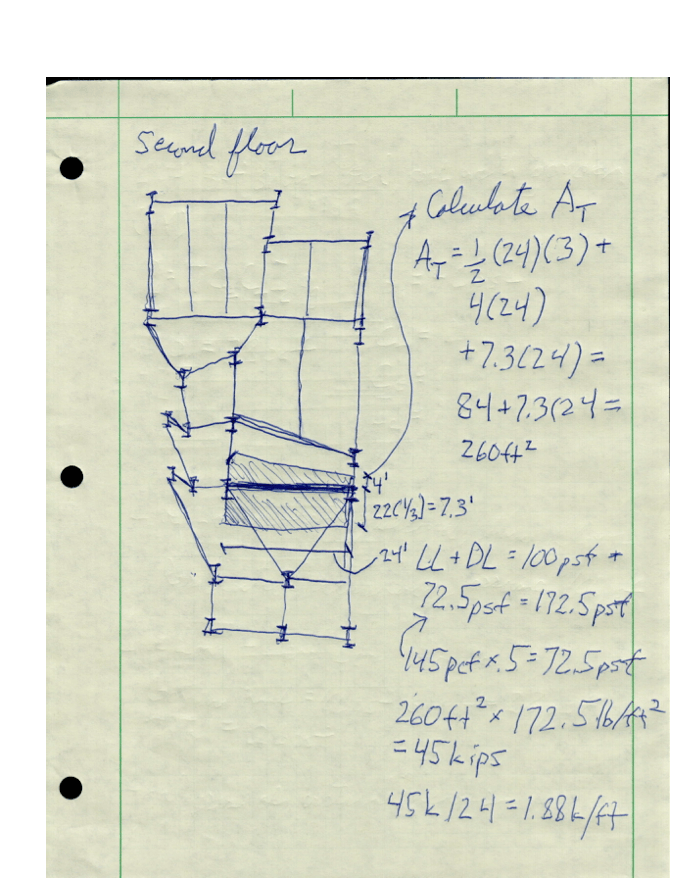 Second floor
Calculate A_T
A_T = 1/2 (24)(3) +
4(24)
+7.3(24) =
84+7.3(24 =
260ft²
4'
22(1/3)=7.3'
24'
LL + DL = 100psf +
72.5psf = 172.5psf
145pcf x .5 = 72.5psf
260ft² x 172.5lb/ft²
= 45kips
45k/24 = 1.88k/ft